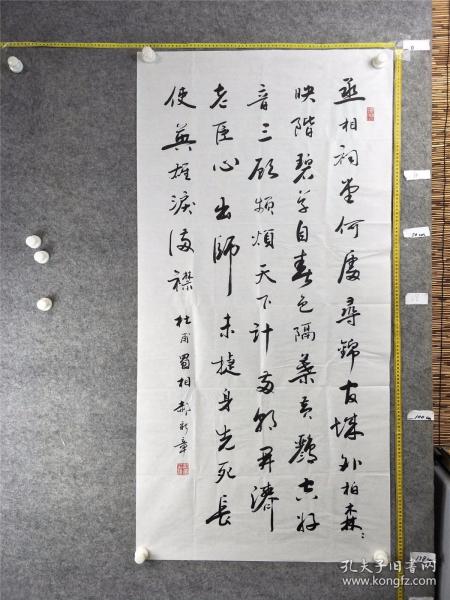 丞相祠堂何處尋錦官城外柏森〻
映階碧草自春色隔葉黃鸝空好
音三顧頻煩天下計兩朝開濟
老臣心出師未捷身先死長
使英雄淚滿襟 杜甫蜀相
0
50cm
100cm
孔夫子旧书网
www.kongfz.com